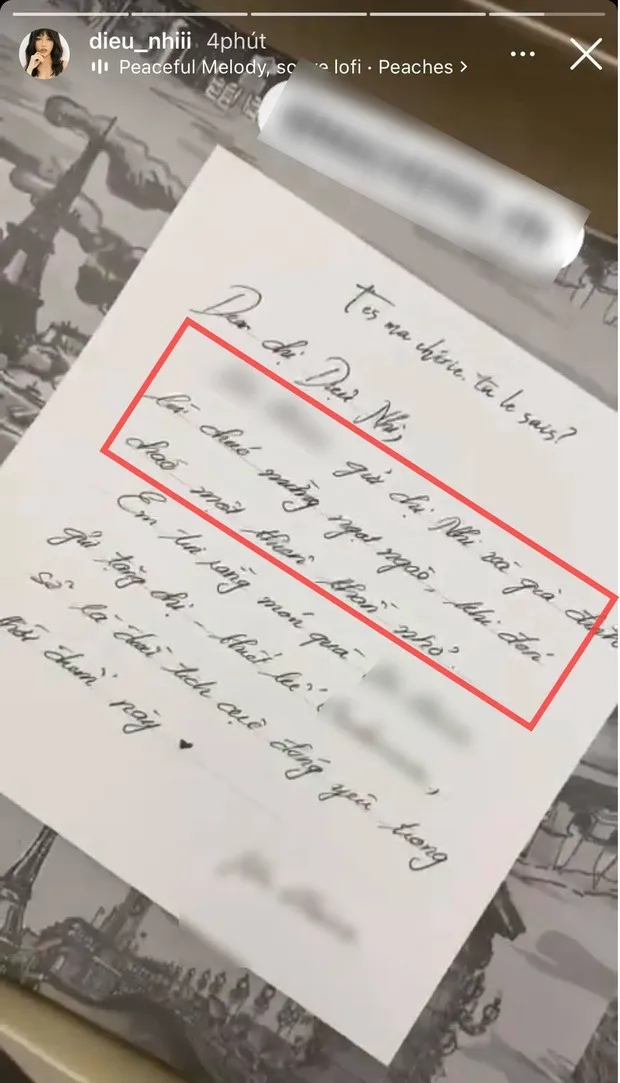 dieu_nhiii 4phút
Peaceful Melody, so lofi · Peaches >
T'es ma chérie. tu le sais?
Dear chị Diệu Nhi,
gửi chị Nhi và gia đình
lời chào mừng ngọt ngào, khi đón
chào một thiên thần nhỏ.
Em tin rằng món quà
gửi tặng chị - thiết kế
sẽ là dấu tích cực đáng yêu trong
thời điểm này ♥